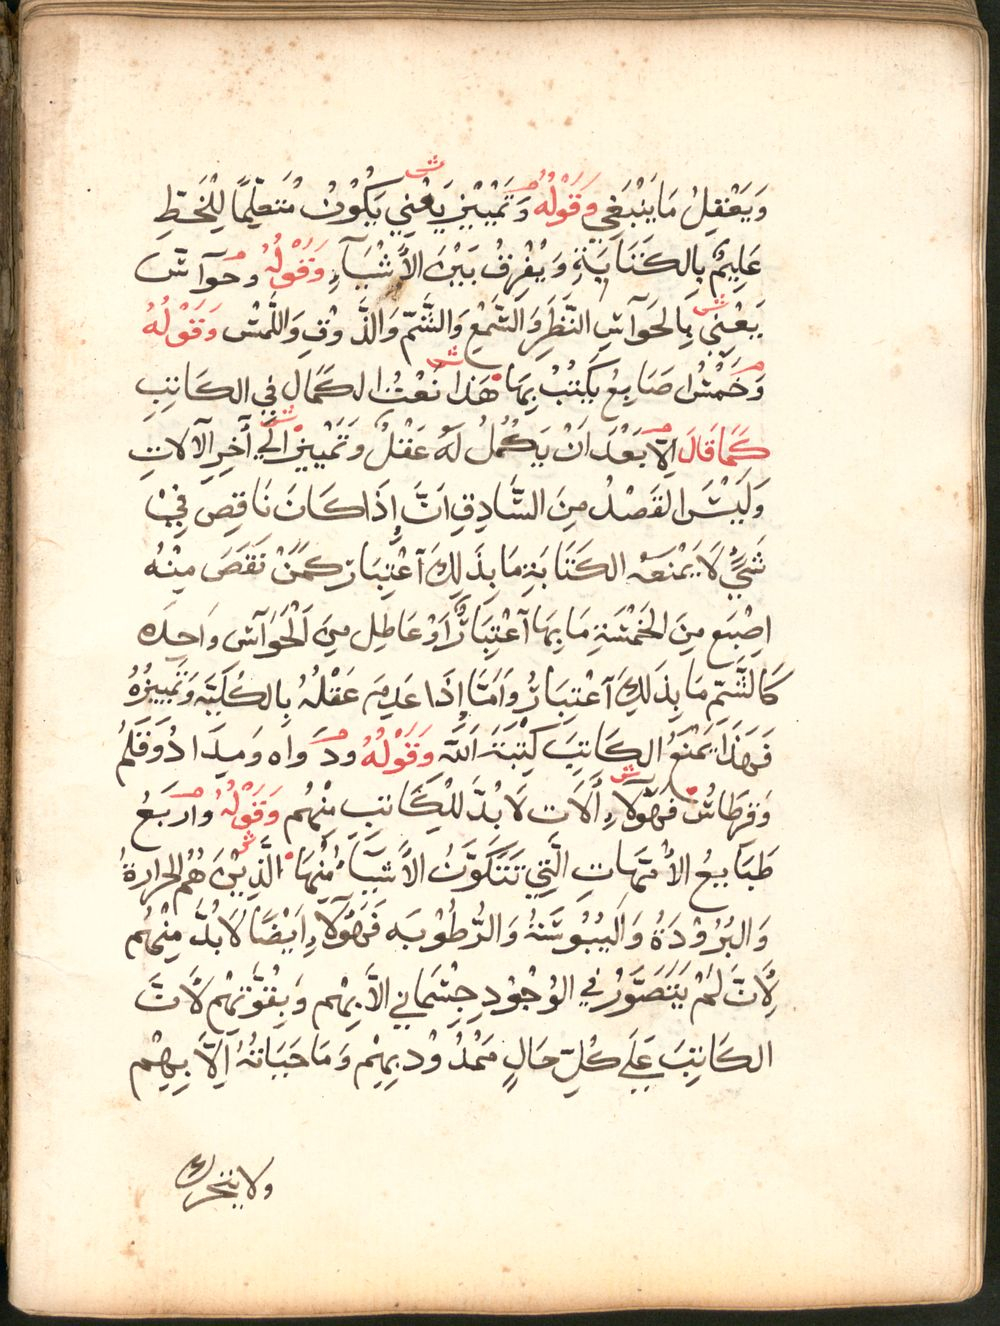 وَيَعْقِلُ مَا يَنْبَغِي وَقَوْلُهُ وَتَمْيِيْز يَعْنِي يَكُوْنُ مُتَعَلِّمًا لِلْخَطِّ
عَلِيْمٌ بِالكَتَابَةِ وَيُفْرِقُ بَيْنَ الأَشْيَآءِ وَقَوْلُهُ وحَوآسّ
يَعْنِي بِالحَوآسِّ النَّظَرِ وَالسَّمْعِ وَالشَّمِّ وَالذَّوْقِ وَاللَّمْسْ وَقَوْلُهُ
وَخَمْسُ اصَابِعْ يَكْتُبْ بِهَا هَذَا نَعْتُ الكَمَال فِي الكَاتِبِ
كَمَا قَالَ اِلَّا بَعْدَ انْ يَكْمُلُ لَهُ عَقْلٌ وَتَمْيِيْز الَي آخِرِ الآلَاتِ
وَلَيْسَ القَصْدُ مِنَ السَّادِقِ انَّ إِذَا كَانَ نَاقِصٍ فِيْ
شَيْءٍ لَا يَمْنَعَهُ الكَتَابَةِ مَا بِذَلِكَ آعْتِبَار كَمَنْ نَقَصَ مِنْهُ
اِصْبَع مِنَ الخَمْسَةِ مَا بِهَا آعْتِبَارٌ اَوْ عَاطِل مِنَ اَلْحَوَآسّ وَاحِدَه
كَالشَّمِّ مَا بِذَلِكَ آعْتِبَارٌ وَامَّا إِذَا عَدِمَ عَقْلُهُ بِالكُلِّيَّه وَتَمْيِيزُهُ
فَهَذَا يَمْنَعُ الكَاتِبَ كِتْبَةَ اللّه وَقَوْلُهُ ودَوَاه وَمِدَادٌ وَقَلَمُ
وَقِرْطَاسٌ فَهَؤُلَاءِ أَلَات لَا بُدَّ لِلْكَاتِبِ مِنْهُم وَقَوْلُهُ وارْبَعُ
طَبَايعُ الأُمَّهَاتِ الَّتِي تَتَكَوَّنُ الأَشْيَآءُ مِنْهَا الَّذِيْنَ هُمُ الحَرارةُ
وَالبُرُوْدَةُ وَاَليُبُوْسَةُ وَالرُّطُوْبَه فَهَؤُلَاءِ اَيْضًا لَابُدَّ مِنْهُم
لِأَنَّ لَمْ يَتَصَوَّرْ فِي الوُجُوْدِ جِسْمَانِي الأَبِهْم وَبِقُوَّتِهْم لأَنَّ
الكَاتِبَ عَلَي كُلِّ حَالٍ مَمْدُوْد بِهْم وَمَا حَيَاتُهُ اَلِّا بِهِم
ولا يتحرك